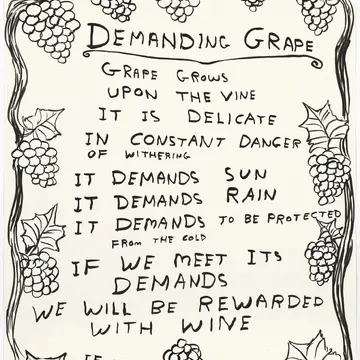 DEMANDING GRAPE
GRAPE GROWS
UPON THE VINE
IT IS DELICATE
IN CONSTANT DANGER
OF WITHERING
IT DEMANDS SUN
IT DEMANDS RAIN
IT DEMANDS TO BE PROTECTED
FROM THE COLD
IF WE MEET ITS
DEMANDS
WE WILL BE REWARDED
WITH WINE